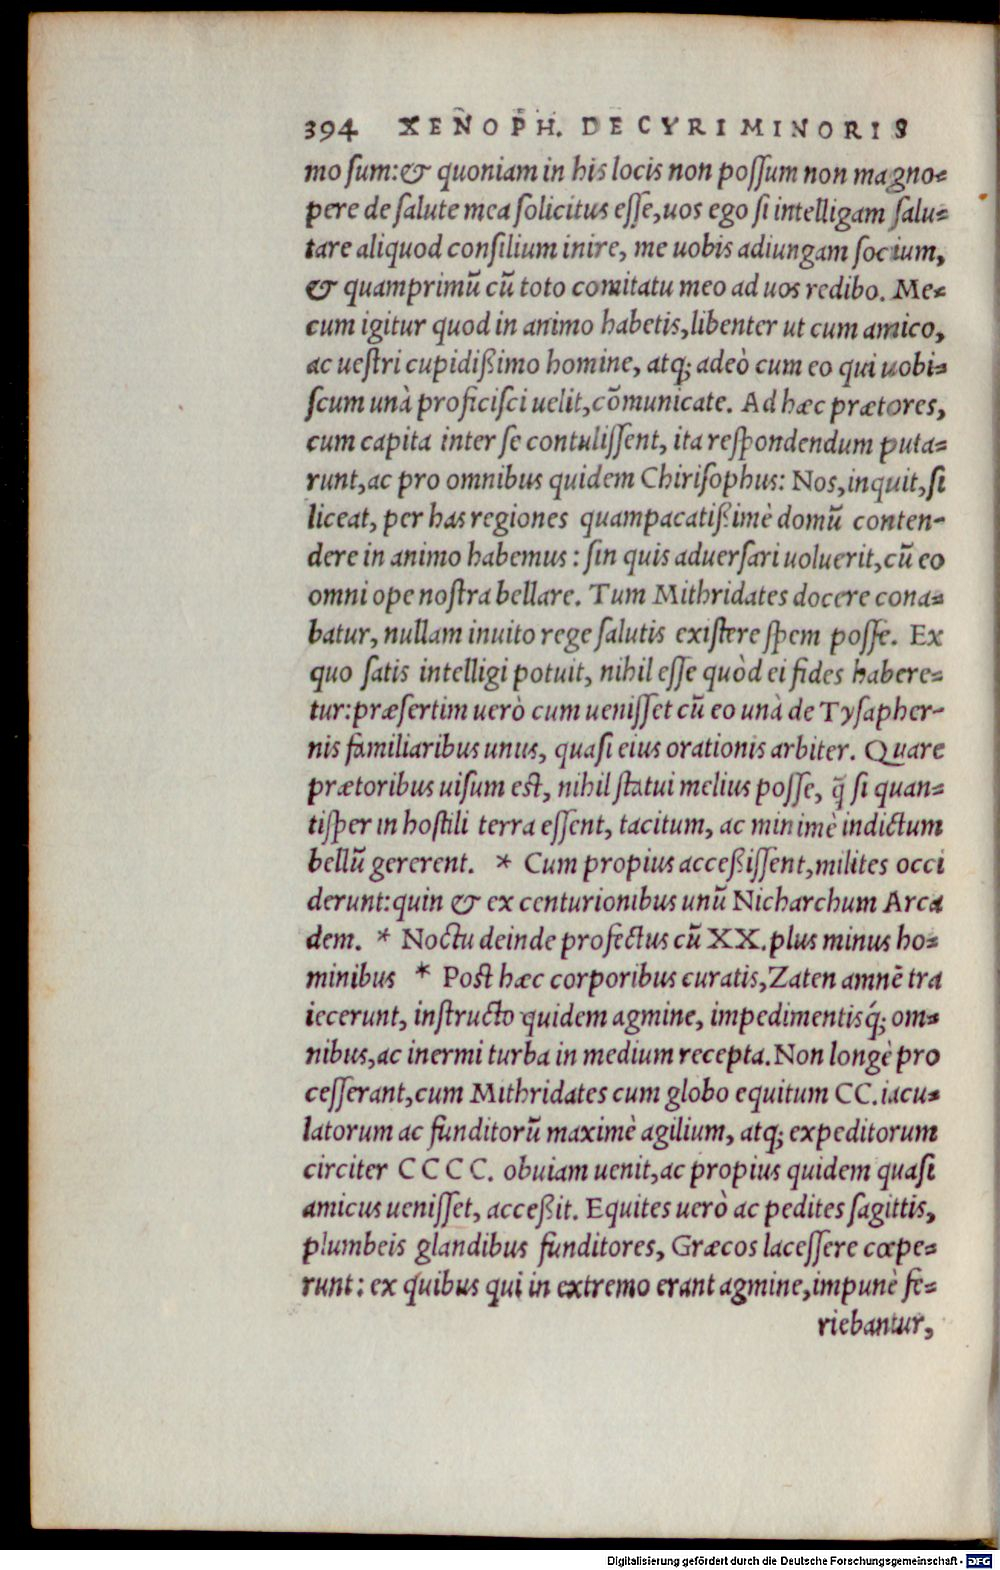 394 XENOPH. DE CYRI MINORIS
mo sum:& quoniam in his locis non possum non magno-
pere de salute mea solicitus esse,uos ego si intelligam salu-
tare aliquod consilium inire, me uobis adiungam socium,
& quamprimũ cũ toto comitatu meo ad uos redibo. Me-
cum igitur quod in animo habetis,libenter ut cum amico,
ac uestri cupidißimo homine, atq; adeò cum eo qui uobi-
scum unà proficisci uelit,cõmunicate. Ad hæc prætores,
cum capita inter se contulissent, ita respondendum puta-
runt,ac pro omnibus quidem Chirisophus: Nos,inquit,si
liceat, per has regiones quampacatißimè domũ conten-
dere in animo habemus : sin quis aduersari uoluerit,cũ eo
omni ope nostra bellare. Tum Mithridates docere cona-
batur, nullam inuito rege salutis existere spem posse. Ex
quo satis intelligi potuit, nihil esse quòd ei fides habere-
tur:præsertim uerò cum uenisset cũ eo unà de Tysapher-
nis familiaribus unus, quasi eius orationis arbiter. Quare
prætoribus uisum est, nihil statui melius posse, q̃ si quan-
tisper in hostili terra essent, tacitum, ac minimè indictum
bellũ gererent. * Cum propius acceßissent,milites occi
derunt:quin & ex centurionibus unũ Nicharchum Arca
dem. * Noctu deinde profectus cũ XX.plus minus ho-
minibus * Post hæc corporibus curatis,Zaten amnẽ tra
iecerunt, instructo quidem agmine, impedimentisq́; om-
nibus,ac inermi turba in medium recepta.Non longè pro
cesserant,cum Mithridates cum globo equitum CC.iacu-
latorum ac funditorũ maximè agilium, atq; expeditorum
circiter CCCC. obuiam uenit,ac propius quidem quasi
amicus uenisset, acceßit. Equites uerò ac pedites sagittis,
plumbeis glandibus funditores, Græcos lacessere cœpe-
runt: ex quibus qui in extremo erant agmine,impunè fe-
riebantur,
Digitalisierung gefördert durch die Deutsche Forschungsgemeinschaft - DFG